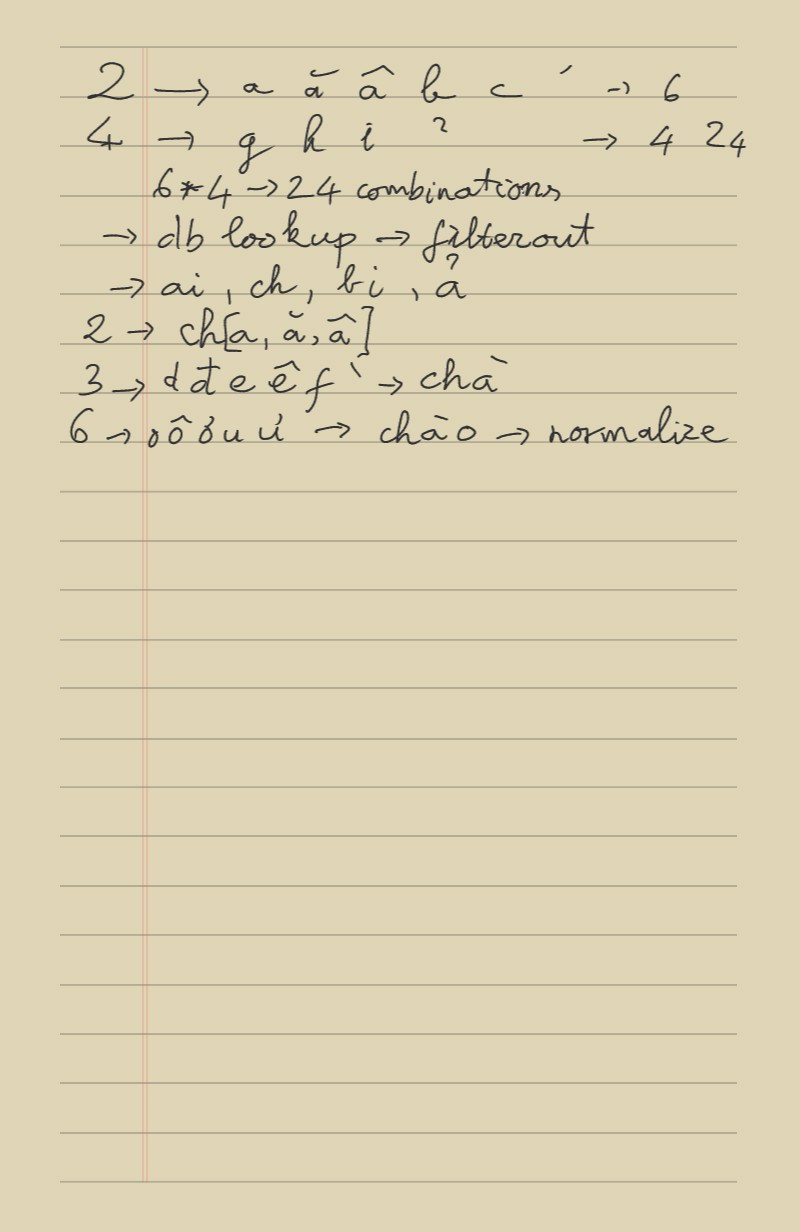 2 → a ă â b c ´ → 6
4 → g h i ̉ → 4 24
6*4 → 24 combinations
→ db lookup → filterout
→ ai, ch, bi, ả
2 → ch[a, ă, â]
3 → d đ e ê f ` → chà
6 → o ô ơ u ư → chào → normalize